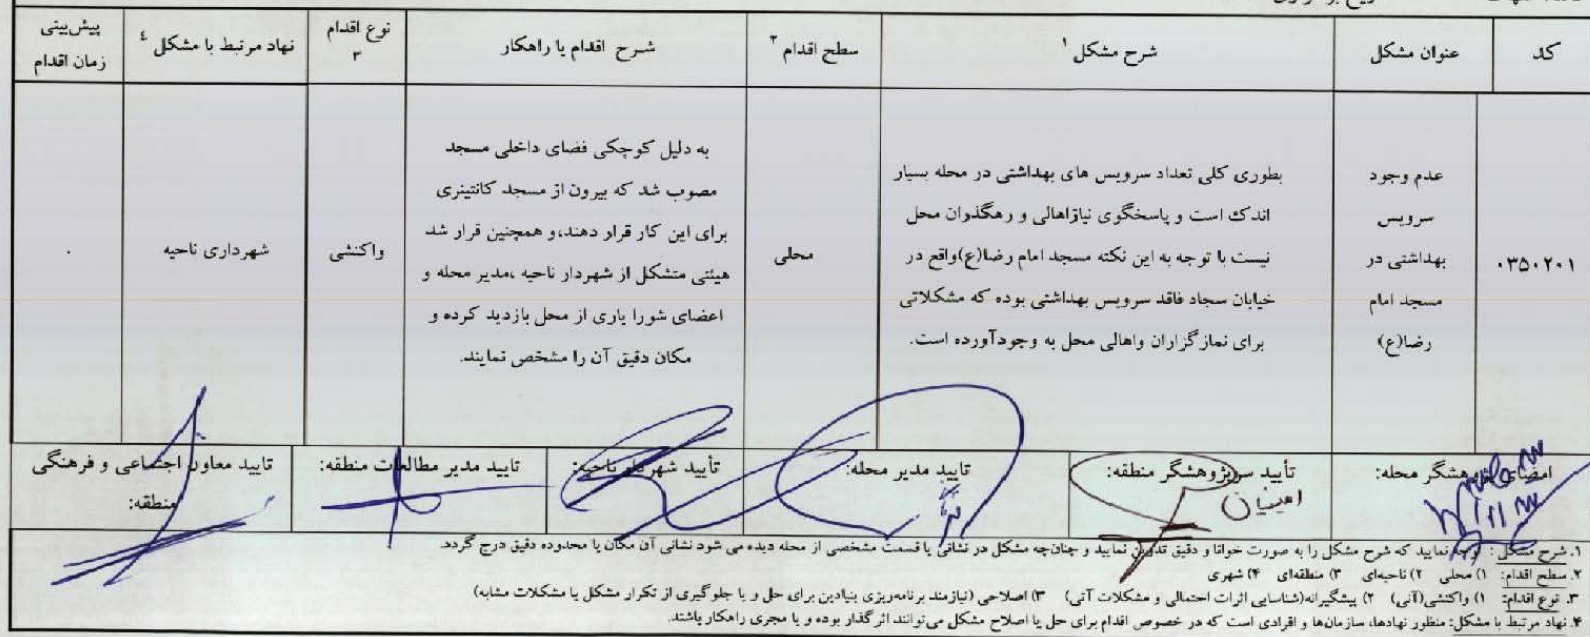 کد
عنوان مشکل
شرح مشکل ۱
سطح اقدام ۲
شرح اقدام یا راهکار
نوع اقدام
۳
نهاد مرتبط با مشکل ۴
پیش‌بینی
زمان اقدام
۰۳۵۰۲۰۱
عدم وجود
سرویس
بهداشتی در
مسجد امام
رضا(ع)
بطوری کلی تعداد سرویس های بهداشتی در محله بسیار
اندک است و پاسخگوی نیازاهالی و رهگذران محل
نیست با توجه به این نکته مسجد امام رضا(ع)واقع در
خیابان سجاد فاقد سرویس بهداشتی بوده که مشکلاتی
برای نمازگزاران واهالی محل به وجودآورده است.
محلی
به دلیل کوچکی فضای داخلی مسجد
مصوب شد که بیرون از مسجد کانتینری
برای این کار قرار دهند،و همچنین قرار شد
هیئتی متشکل از شهردار ناحیه ،مدیر محله و
اعضای شورا یاری از محل بازدید کرده و
مکان دقیق آن را مشخص نمایند.
واکنشی
شهرداری ناحیه
.
امضای پژوهشگر محله:
تأیید سرپژوهشگر منطقه:
امینیان
تایید مدیر محله:
تأیید شهردار ناحیه:
تایید مدیر مطالعات منطقه:
تایید معاون اجتماعی و فرهنگی
منطقه:
۱. شرح مشکل : توجه نمایید که شرح مشکل را به صورت خوانا و دقیق تدوین نمایید و چنان‌چه مشکل در نشانی یا قسمت مشخصی از محله دیده می شود نشانی آن مکان یا محدوده دقیق درج گردد.
۲. سطح اقدام: ۱) محلی ۲) ناحیه‌ای ۳) منطقه‌ای ۴) شهری
۳. نوع اقدام: ۱) واکنشی(آنی) ۲) پیشگیرانه(شناسایی اثرات احتمالی و مشکلات آتی) ۳) اصلاحی (نیازمند برنامه‌ریزی بنیادین برای حل و یا جلوگیری از تکرار مشکل یا مشکلات مشابه)
۴. نهاد مرتبط با مشکل: منظور نهادها، سازمان‌ها و افرادی است که در خصوص اقدام برای حل یا اصلاح مشکل می‌توانند اثرگذار بوده و یا مجری راهکار باشند.